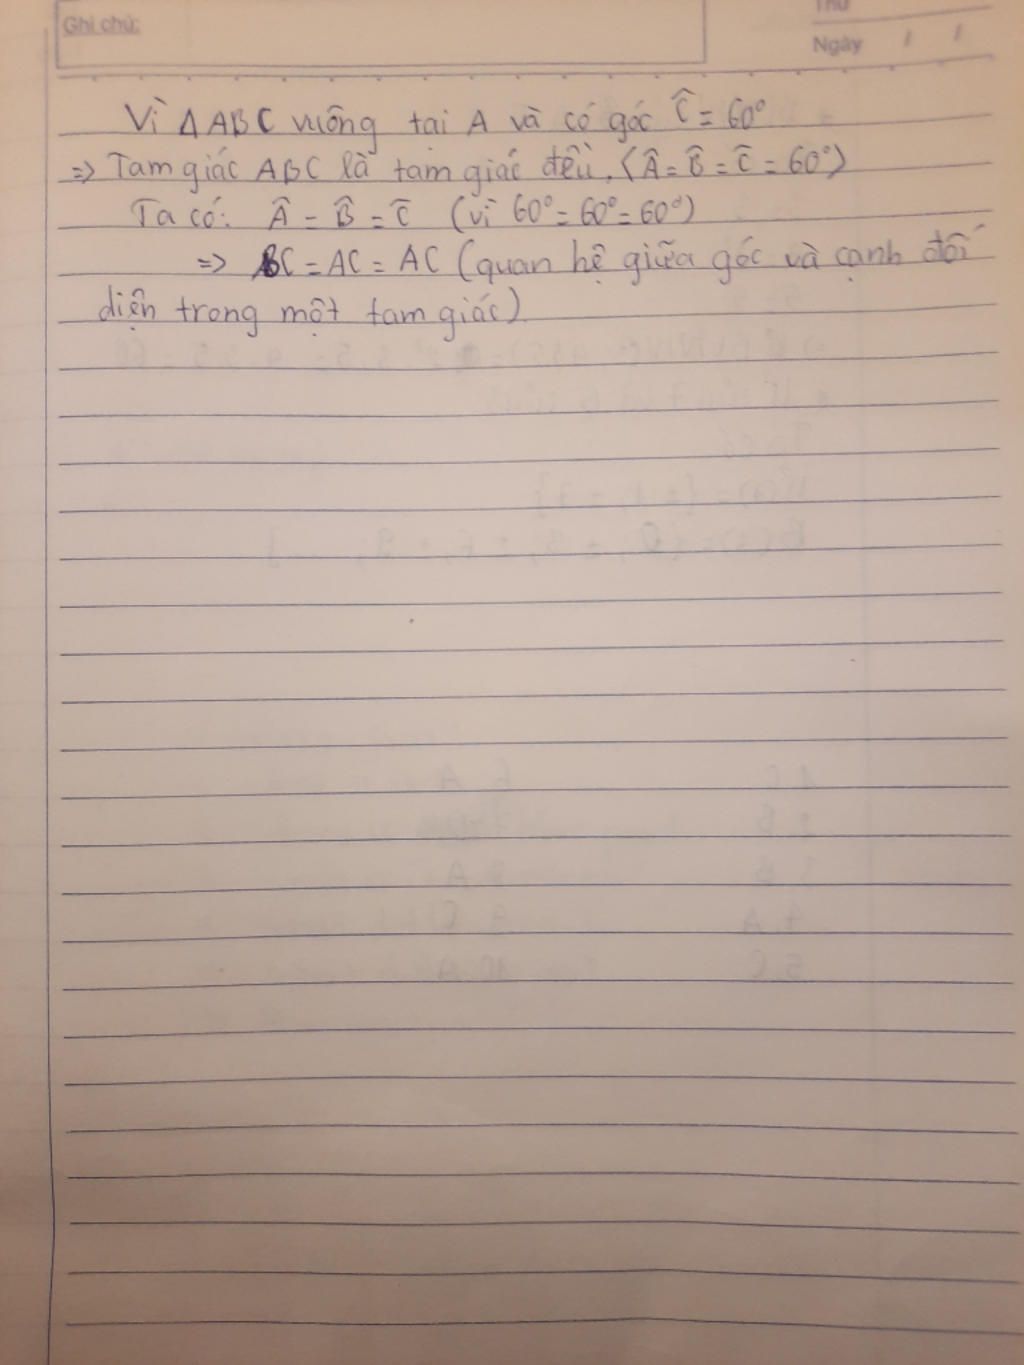 Ghi chú:
Thứ
Ngày / /
Vì ΔABC vuông tại A và có góc Ĉ = 60°
=> Tam giác ABC là tam giác đều. (Â = B̂ = Ĉ = 60°)
Ta có: Â = B̂ = Ĉ (vì 60° = 60° = 60°)
=> BC = AC = AC (quan hệ giữa góc và cạnh đối
diện trong một tam giác)